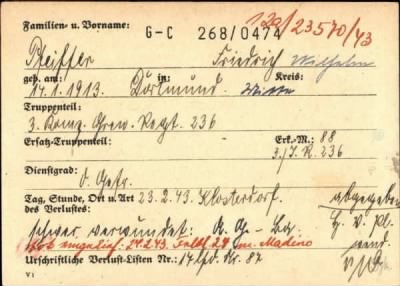 Familien- u. Vorname: G-C 268/0474 120/23570/43
Pfeiffer Friedrich Wilhelm
geb. am: in: Kreis:
14.1.1913. Dortmund. Witten
Truppenteil:
3. Komp. Gren. Regt. 236
Ersatz-Truppenteil: Erk.-M.: 88
3./J.R. 236
Dienstgrad:
O. Gefr.
Tag, Stunde, Ort u. Art 23.2.43. Klosterdorf. abgegeben
des Verlustes:
schwer verwundet: A. G. - Ba.
24.2.43.
Urschriftliche Verlust-Listen Nr.: 14 lfd. Nr. 87
VI